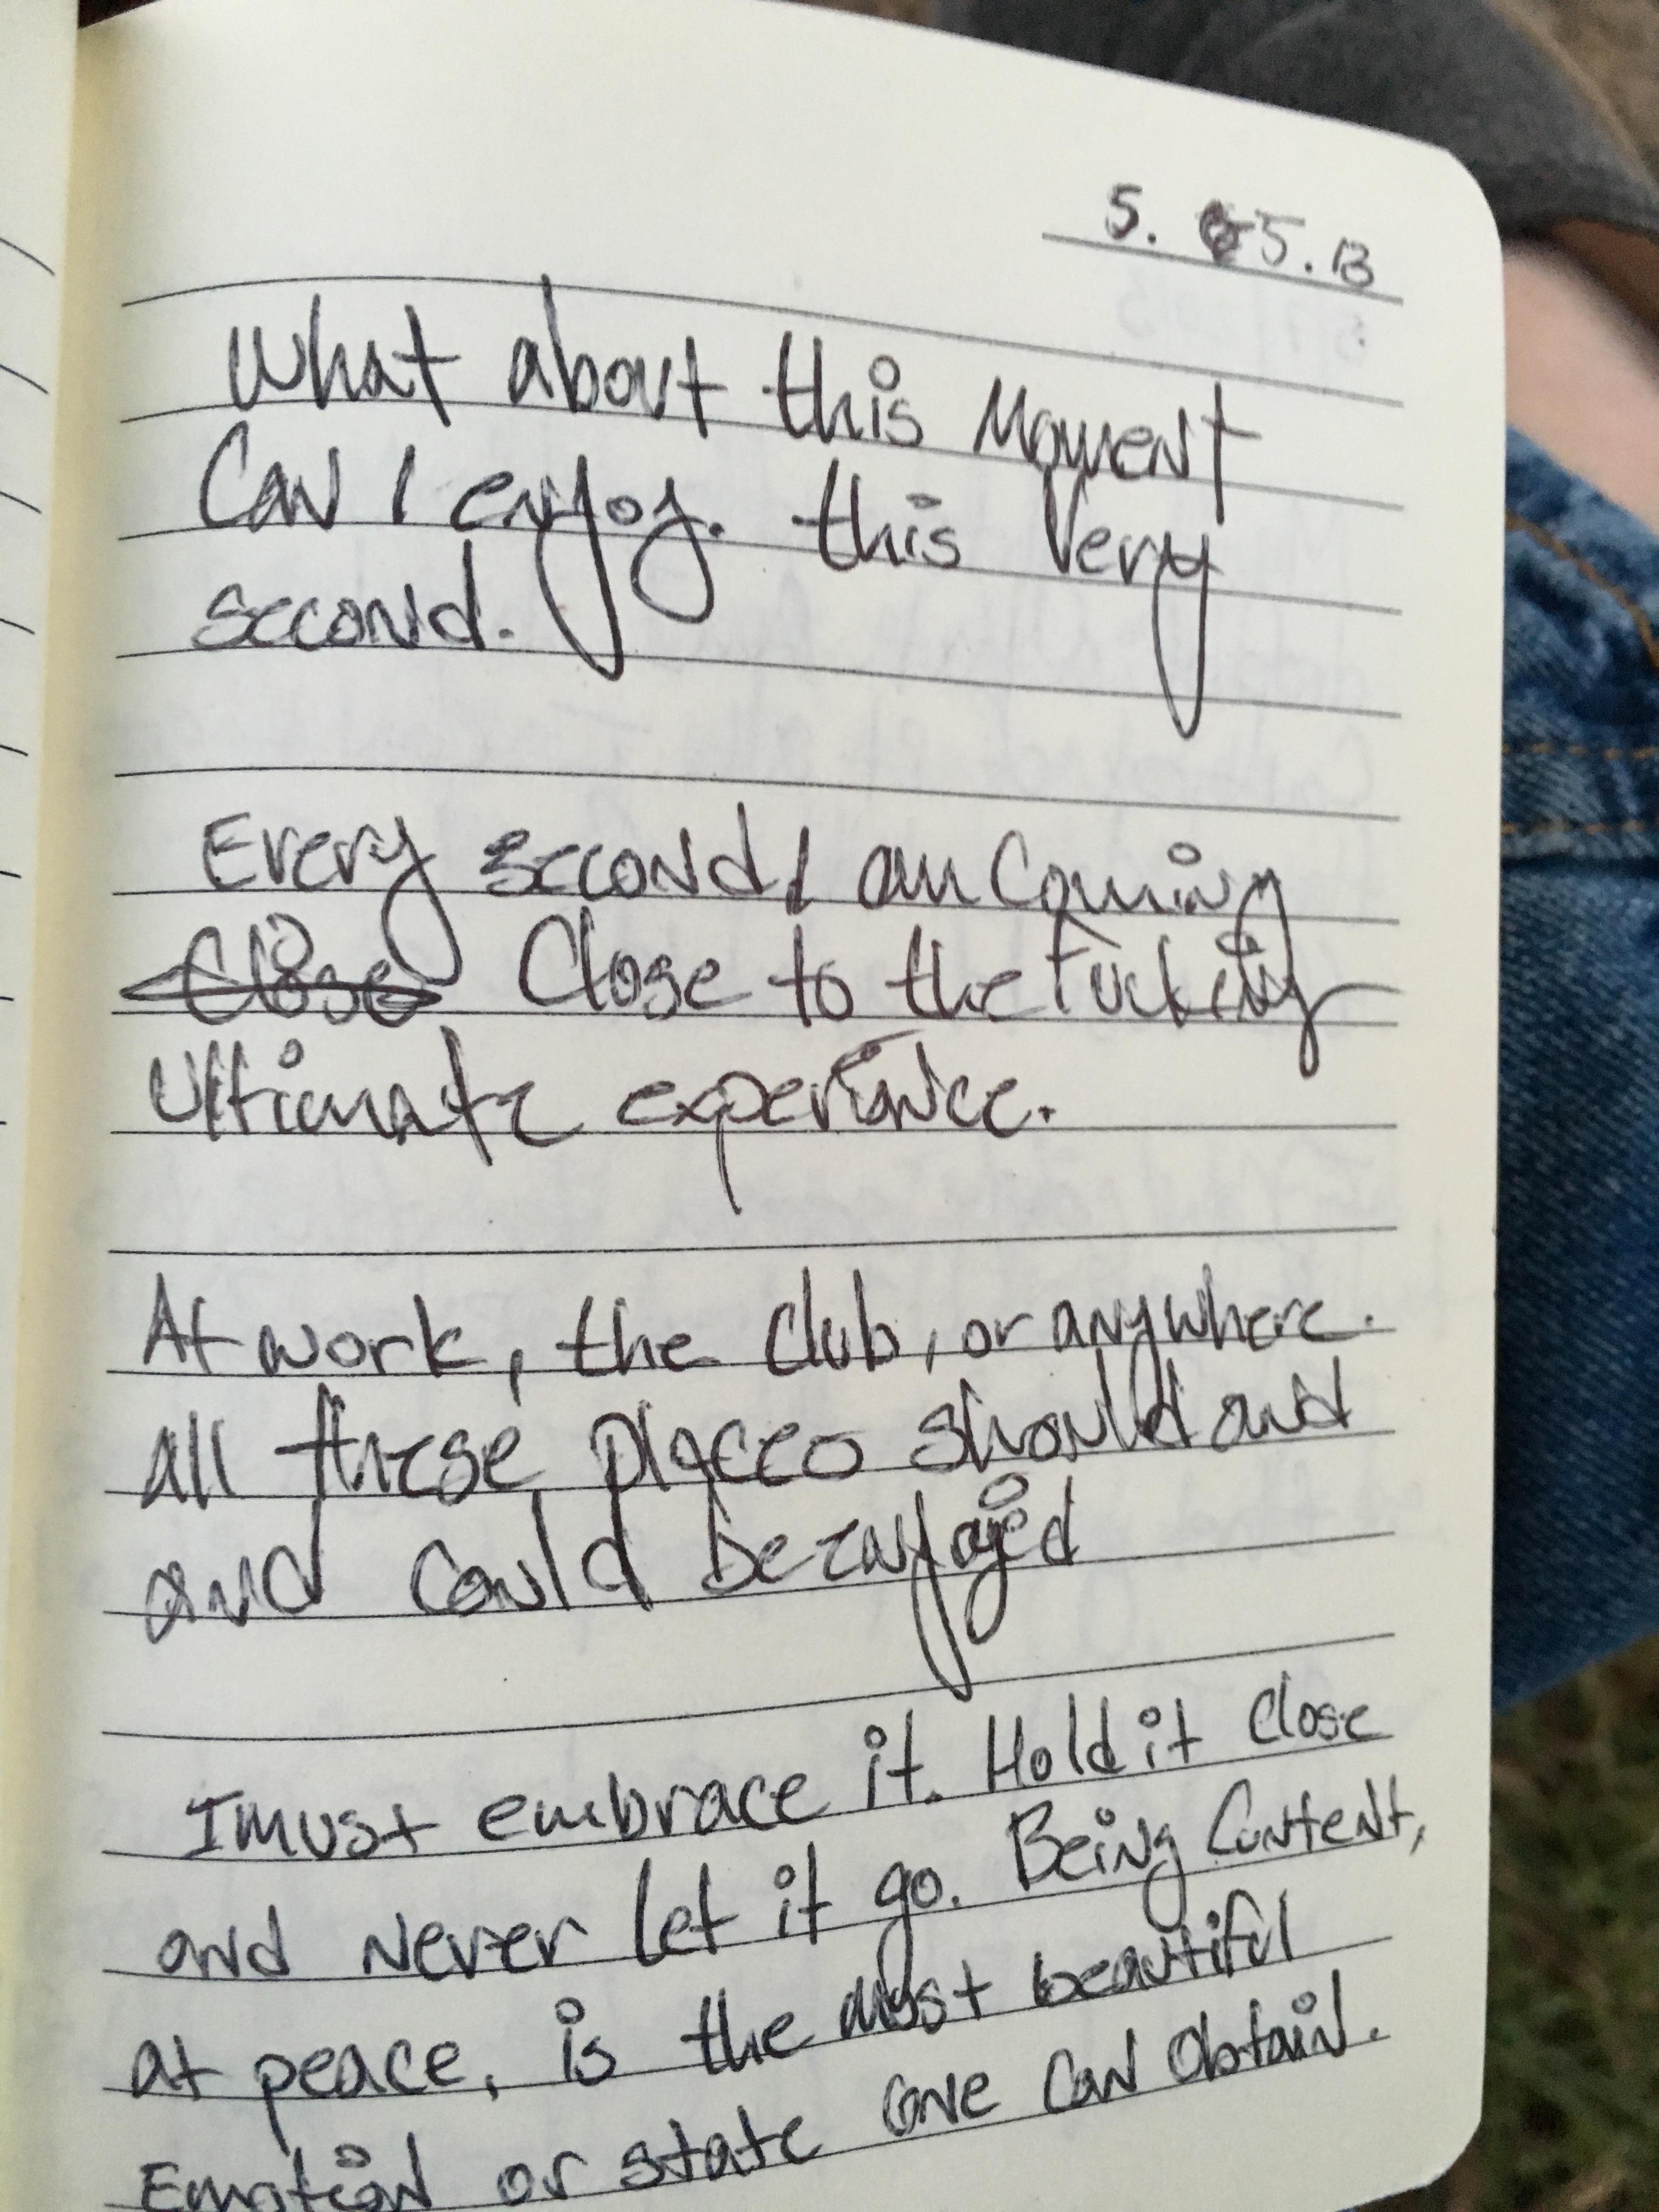 5. 5.13
What about this Moment
Can I enjoy. this Very
second.
Every second I am Coming
Close Close to the Fucking
Ultimate experience.
At work, the Club, or anywhere.
all these places should and
and Could be enjoyed
I must embrace it. Hold it Close
and Never let it go. Being Content,
at peace, is the most beautiful
Emotion or state one Can Obtain.